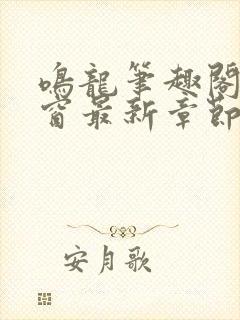 鳴龍筆趣閣
窗最新章節
安月歌